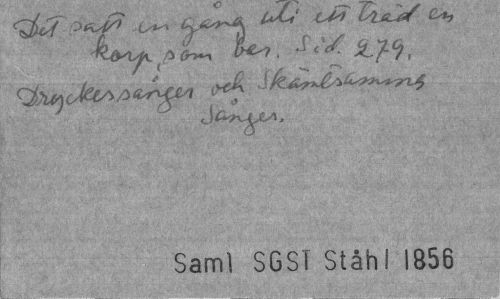 Det satt en gång uti ett träd en
korp, som bar. Sid. 279.
Dryckessånger och Skämtsamma
Sånger.
Saml SGST Ståhl 1856